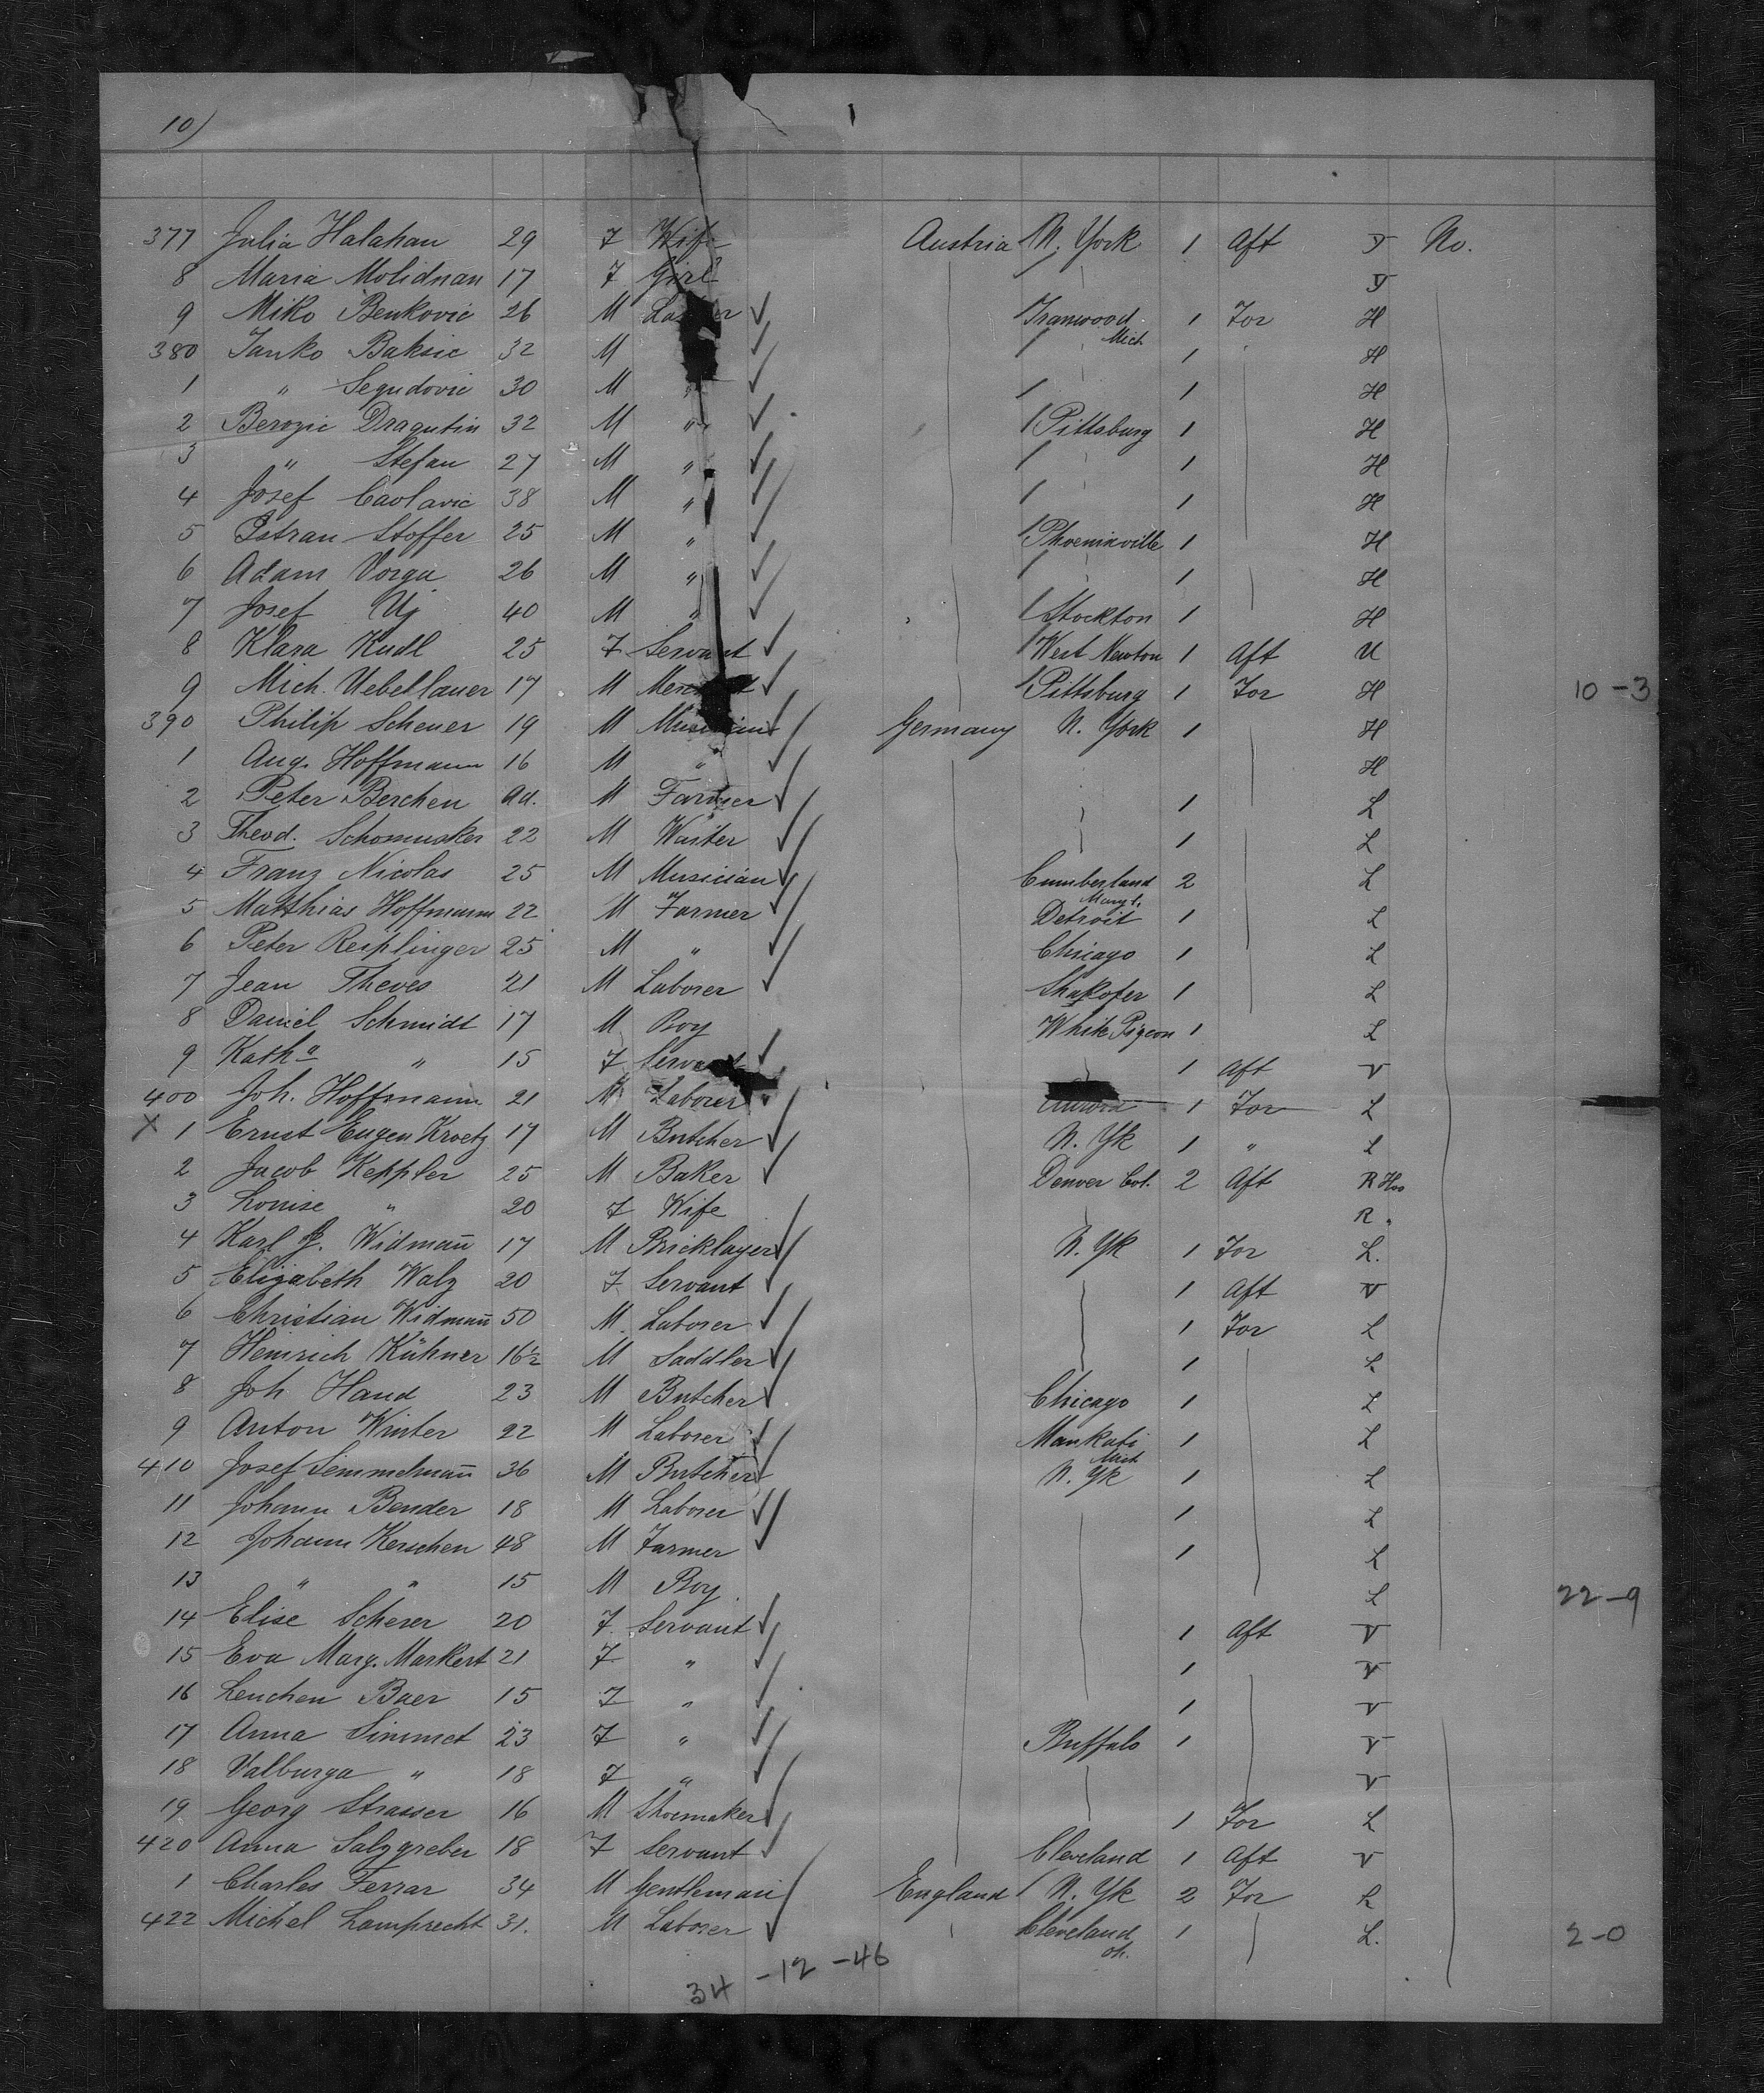 10)
377 Julia Halahan 29 F Wife Austria N. York 1 Aft F No.
8 Maria Molidnan 17 F Girl F
9 Miko Benkovic 26 M ✓ Iranwood Mich 1 For H
380 Janko Baksic 32 M ✓ 1 H
1 " Segudovic 30 M " ✓ 1 H
2 Berozic Dragutin 32 M " ✓ Pittsburg 1 H
3 " Stefan 27 M " ✓ 1 H
4 Josef Cavlavic 38 M " ✓ 1 H
5 Istran Stoffer 25 M " ✓ Phoenixville 1 H
6 Adam Vorga 26 M " ✓ 1 H
7 Josef Uj 40 M " ✓ Stockton 1 H
8 Klara Kudl 25 F Servant ✓ West Newton 1 Aft U
9 Mich. Uebellauer 17 M ✓ Pittsburg 1 For H 10-3
390 Philip Scheuer 19 M Musician ✓ Germany N. York 1 H
1 Aug. Hoffmann 16 M " ✓ H
2 Peter Berchen ad. M Farmer ✓ 1 L
3 Theod. Schomusker 22 M Waiter ✓ 1 L
4 Franz Nicolas 25 M Musician ✓ Cumberland Maryl. 2 L
5 Matthias Hoffmann 22 M Farmer ✓ Detroit 1 L
6 Peter Resplinger 25 M " ✓ Chicago 1 L
7 Jean Theves 21 M Laborer ✓ Shakofer 1 L
8 Daniel Schmidt 17 M Boy White Pigeon 1 L
9 Kath<sup>a</sup> " 15 F Servant ✓ 1 Aft V
400 Joh. Hoffmann 21 M Laborer 1 For L
X 1 Ernst Eugen Kroetz 17 M Butcher ✓ N. Yk 1 " L
2 Jacob Keppler 25 M Baker ✓ Denver Col. 2 Aft R Hos
3 Louise " 20 F Wife R "
4 Karl J. Widmañ 17 M Bricklayer ✓ N. Yk 1 For L.
5 Elizabeth Walz 20 F Servant ✓ 1 Aft V
6 Christian Widmañ 50 M Laborer ✓ 1 For L
7 Heinrich Kühner 16½ M Saddler ✓ 1 L
8 Joh Hand 23 M Butcher ✓ Chicago 1 L
9 Anton Winter 22 M Laborer ✓ Mankati Mich 1 L
410 Josef Semmelmañ 36 M Butcher ✓ N. Yk 1 L
11 Johann Bender 18 M Laborer ✓ 1 L
12 Johann Kerschen 48 M Farmer ✓ 1 L
13 " " 15 M Boy L 22-9
14 Elise Scherer 20 F Servant ✓ 1 Aft V
15 Eva Marg. Markert 21 F " ✓ 1 V
16 Lenchen Baer 15 F " ✓ 1 V
17 Anna Simmet 23 F " ✓ Buffalo 1 V
18 Valburga " 18 F " ✓ V
19 Georg Strasser 16 M Shoemaker ✓ 1 For L
420 Anna Salzgreber 18 F Servant ✓ Cleveland 1 Aft V
1 Charles Ferrar 34 M Gentleman England N. Yk 2 For L
422 Michel Lamprecht 31. M Laborer ✓ Cleveland oh. 1 L. 2-0
34 -12 -46